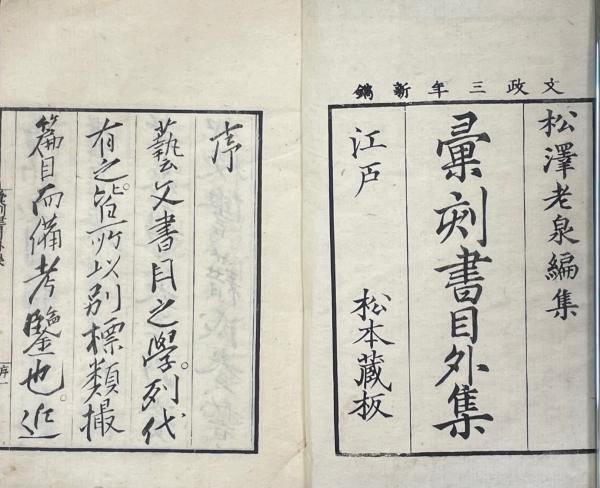 文政三年新鐫
松澤老泉編集
彙刻書目外集
江戸 松本藏板
序
藝文書目之學。列代
有之。皆所以別標類撮
篇目而備考鑒也。近
彙刻書目外集
序一